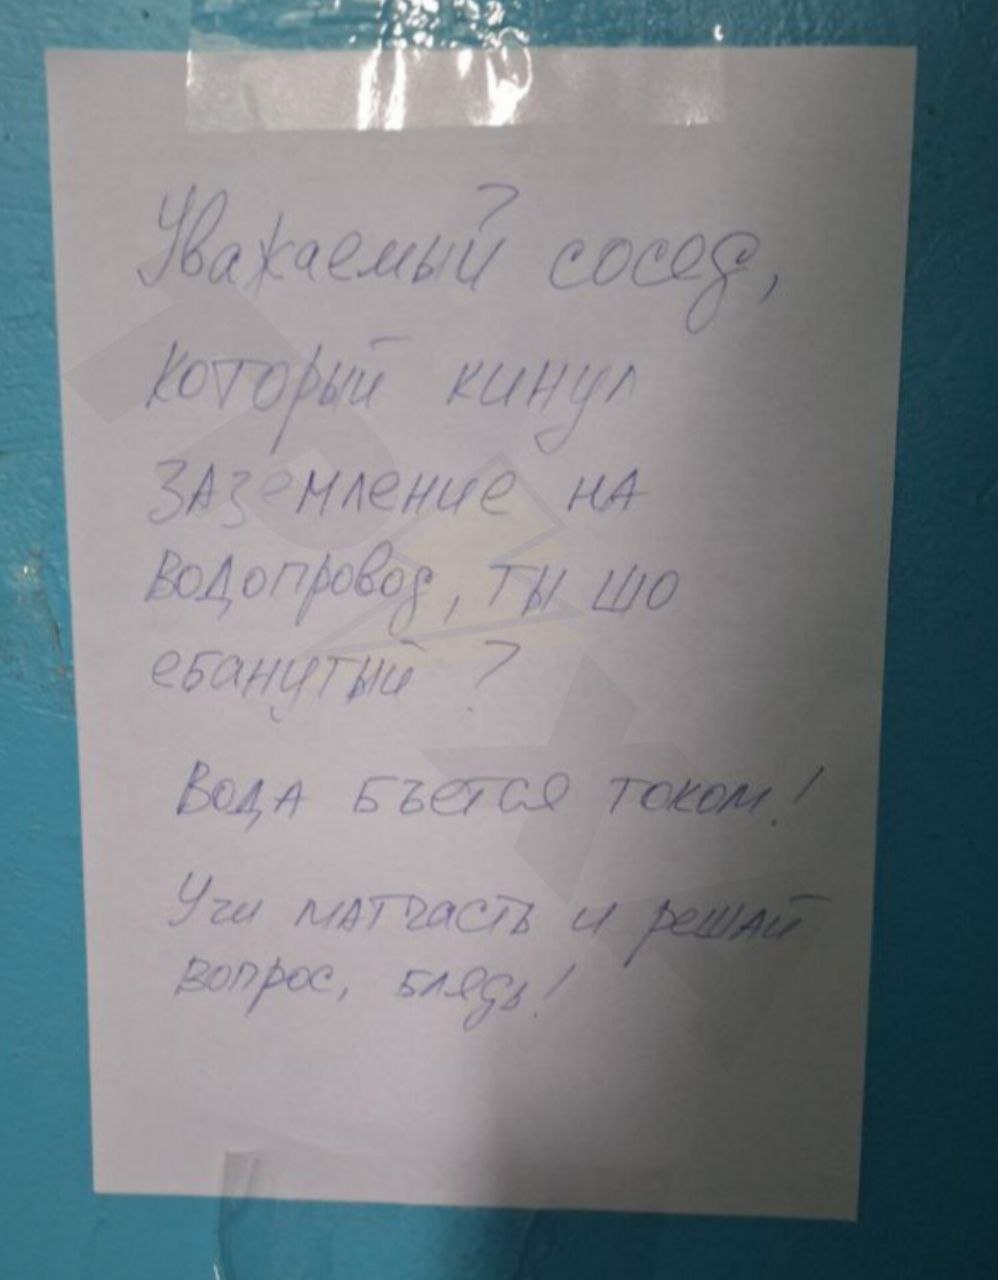 Уважаемый сосед,
который кинул
заземление на
водопровод, ты шо
ебанутый?
Вода бъется током!
Учи матчасть и решай
вопрос, блядь!